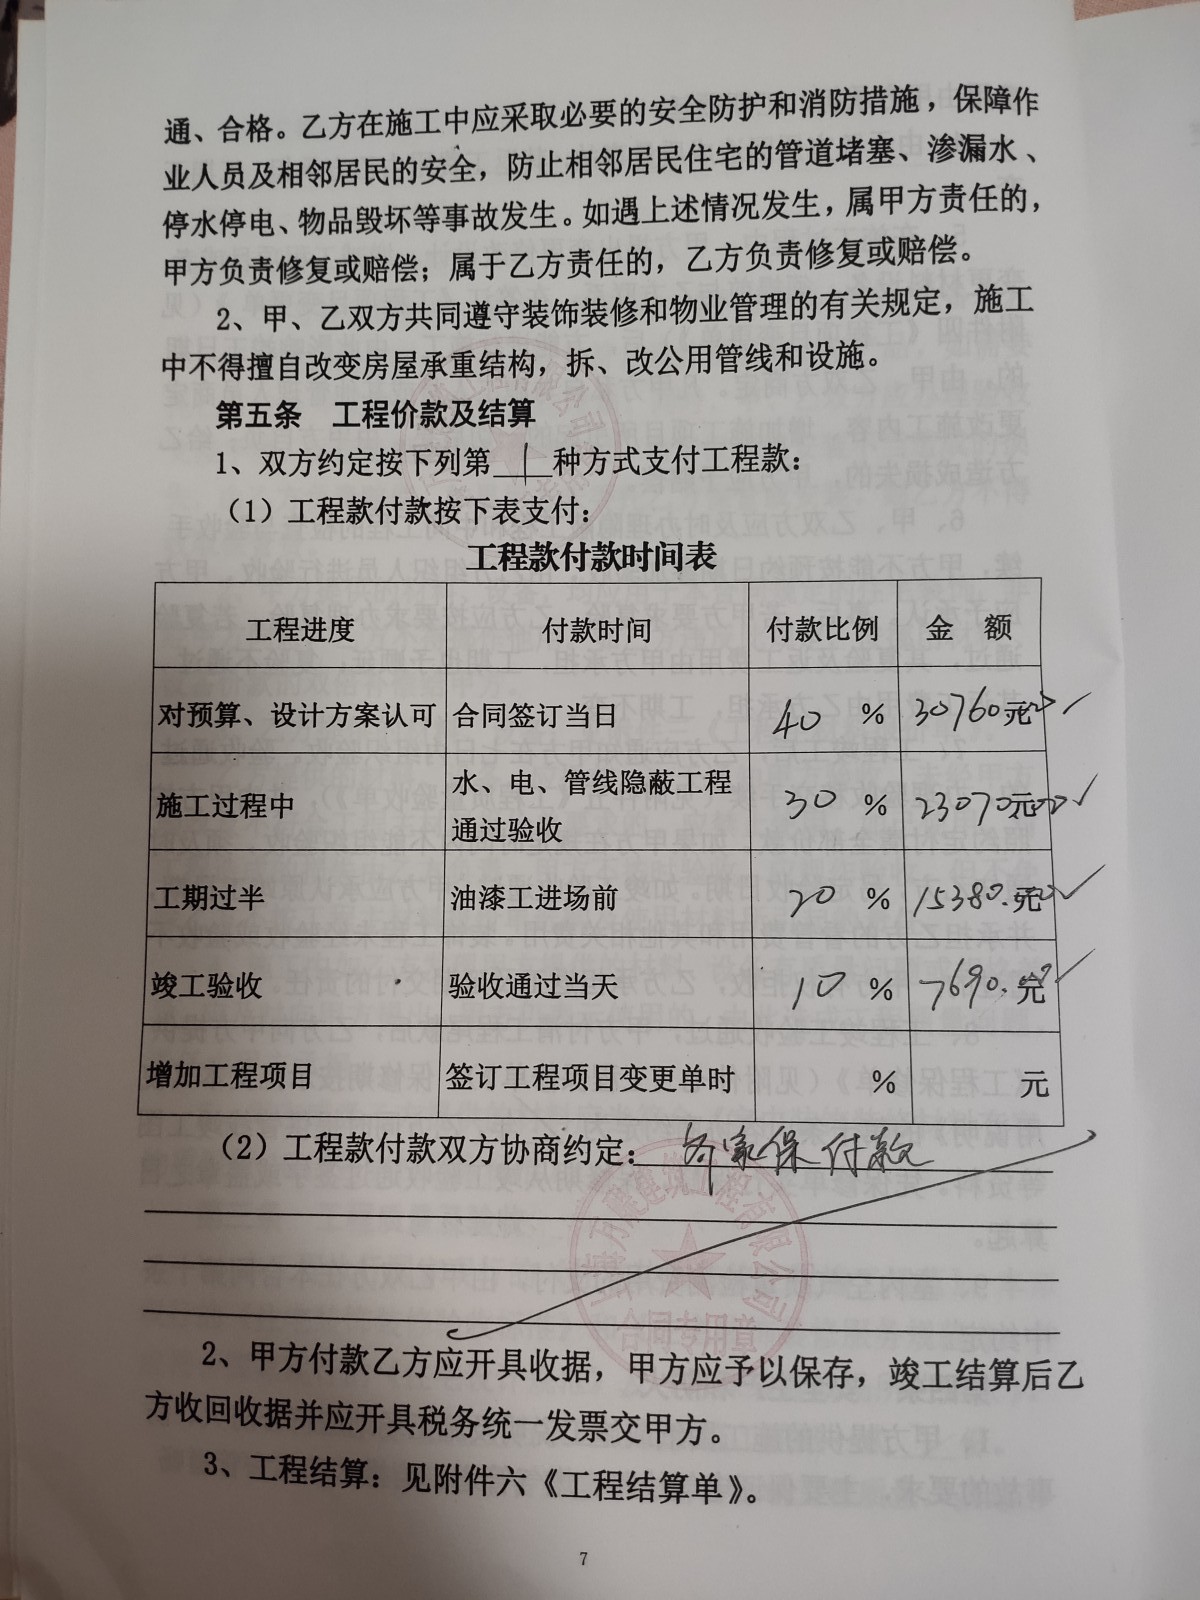 通、合格。乙方在施工中应采取必要的安全防护和消防措施，保障作
业人员及相邻居民的安全，防止相邻居民住宅的管道堵塞、渗漏水、
停水停电、物品毁坏等事故发生。如遇上述情况发生，属甲方责任的，
甲方负责修复或赔偿；属于乙方责任的，乙方负责修复或赔偿。
2、甲、乙双方共同遵守装饰装修和物业管理的有关规定，施工
中不得擅自改变房屋承重结构，拆、改公用管线和设施。
第五条 工程价款及结算
1、双方约定按下列第 1 种方式支付工程款：
（1）工程款付款按下表支付：
工程款付款时间表
工程进度 付款时间 付款比例 金 额
对预算、设计方案认可 合同签订当日 40 % 30760元
施工过程中 水、电、管线隐蔽工程
通过验收 30 % 23070元
工期过半 油漆工进场前 20 % 15380.元
竣工验收 验收通过当天 10 % 7690.元
增加工程项目 签订工程项目变更单时 % 元
（2）工程款付款双方协商约定： 家保付款
建筑工程有限公司
合同专用章
2、甲方付款乙方应开具收据，甲方应予以保存，竣工结算后乙
方收回收据并应开具税务统一发票交甲方。
3、工程结算：见附件六《工程结算单》。
7